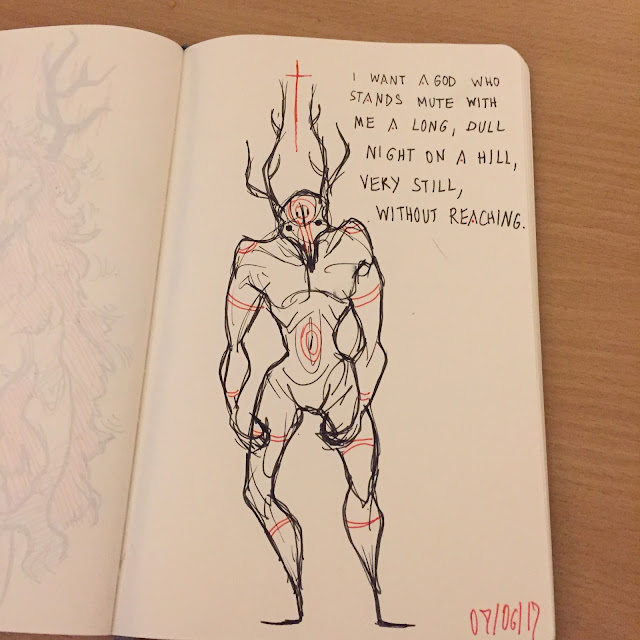 I WANT A GOD WHO
STANDS MUTE WITH
ME A LONG, DULL
NIGHT ON A HILL,
VERY STILL,
WITHOUT REACHING.
07/06/17